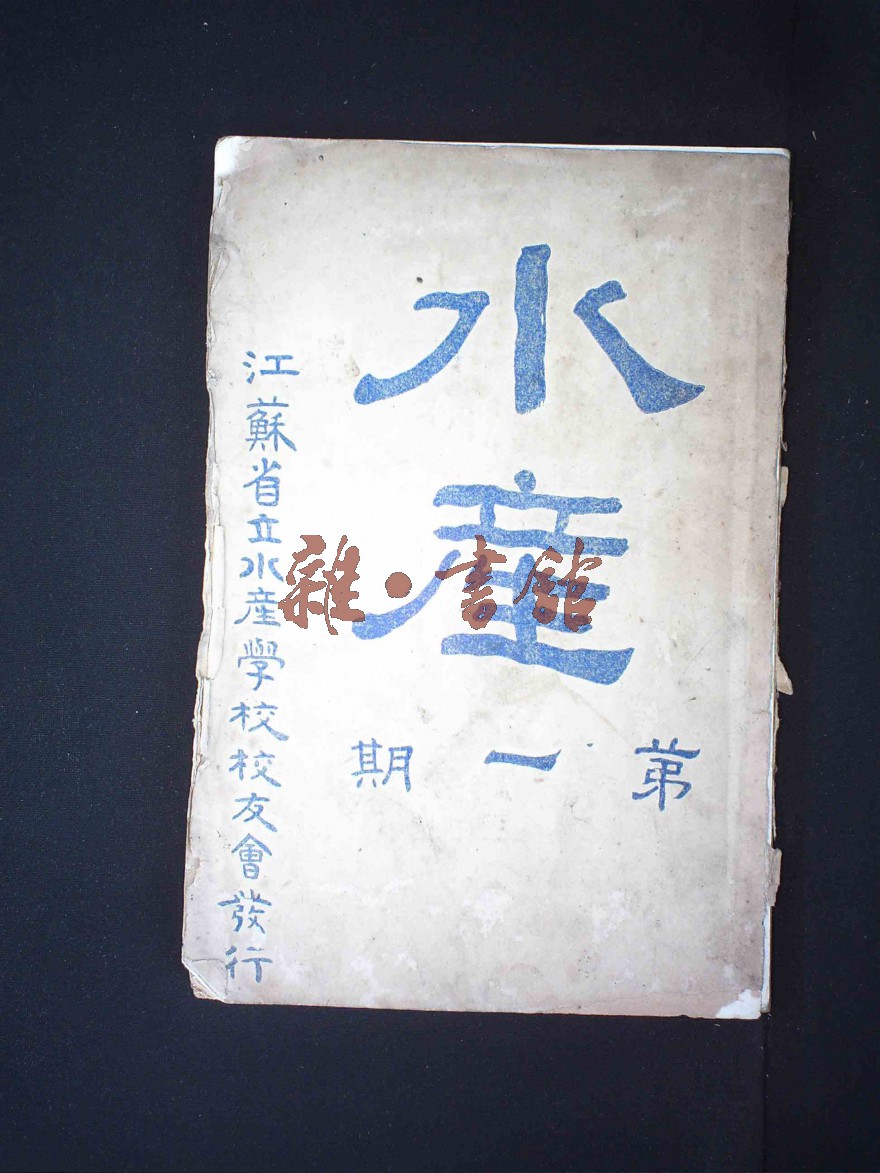 水產
第一期
江蘇省立水產學校校友會發行
雜·書館